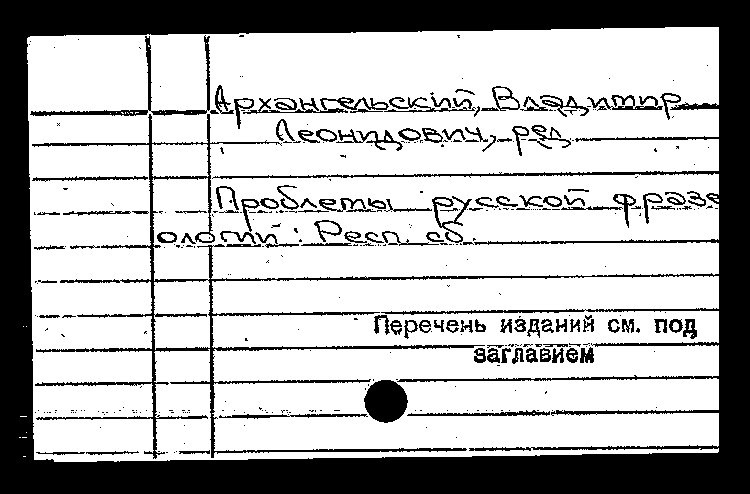 Архангельский, Владимир
Леонидович, ред.
Проблемы русской фразе
ологии : Респ. сб.
Перечень изданий см. под
заглавием